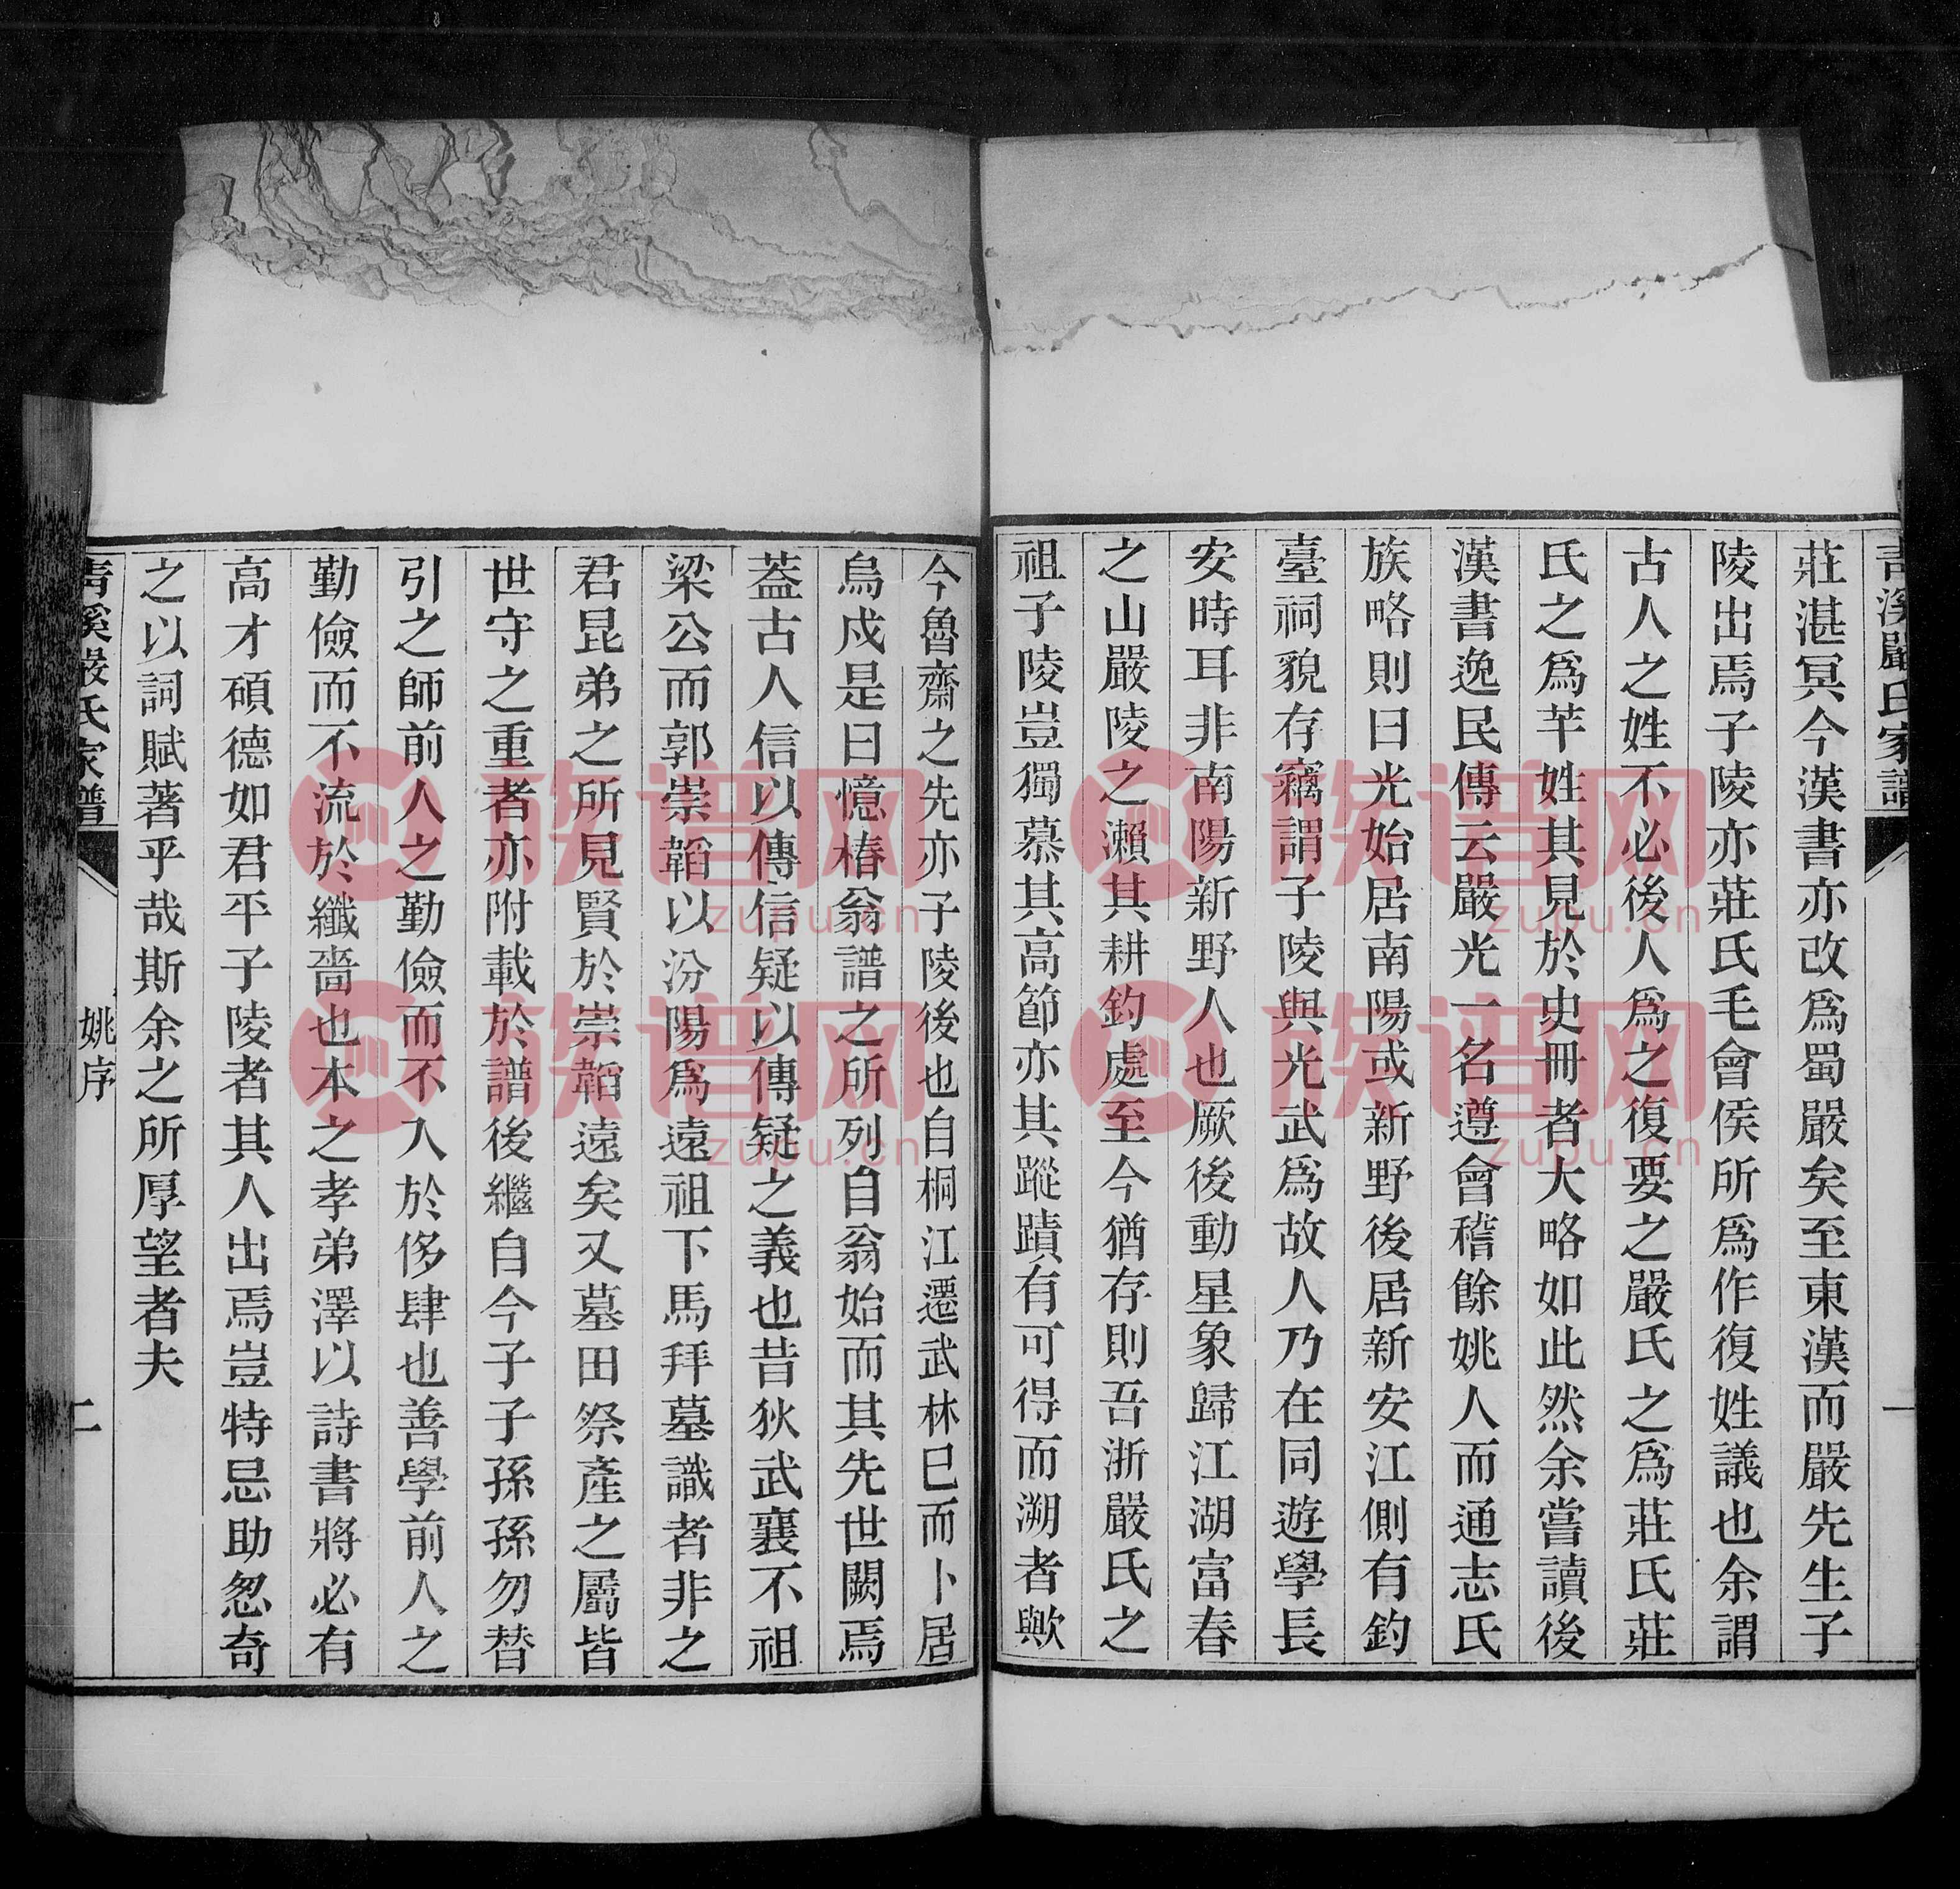 青溪嚴氏家譜
一
莊湛冥今漢書亦改爲蜀嚴矣至東漢而嚴先生子
陵出焉子陵亦莊氏毛會侯所爲作復姓議也余謂
古人之姓不必後人爲之復要之嚴氏之爲莊氏莊
氏之爲芊姓其見於史冊者大略如此然余嘗讀後
漢書逸民傳云嚴光一名遵會稽餘姚人而通志氏
族略則曰光始居南陽或新野後居新安江側有釣
臺祠貌存竊謂子陵與光武爲故人乃在同遊學長
安時耳非南陽新野人也厥後動星象歸江湖富春
之山嚴陵之瀨其耕釣處至今猶存則吾浙嚴氏之
祖子陵豈獨慕其高節亦其蹤蹟有可得而溯者歟
今魯齋之先亦子陵後也自桐江遷武林巳而卜居
烏戍是曰憶椿翁譜之所列自翁始而其先世闕焉
葢古人信以傳信疑以傳疑之義也昔狄武襄不祖
梁公而郭崇韜以汾陽爲遠祖下馬拜墓識者非之
君昆弟之所見賢於崇韜遠矣又墓田祭產之屬皆
世守之重者亦附載於譜後繼自今子子孫孫勿替
引之師前人之勤儉而不入於侈肆也善學前人之
勤儉而不流於纖嗇也本之孝弟澤以詩書將必有
高才碩德如君平子陵者其人出焉豈特忌助怱奇
之以詞賦著乎哉斯余之所厚望者夫
青溪嚴氏家譜
姚序
二
族谱网
zupu.cn
族谱网
zupu.cn
族谱网
zupu.cn
族谱网
zupu.cn